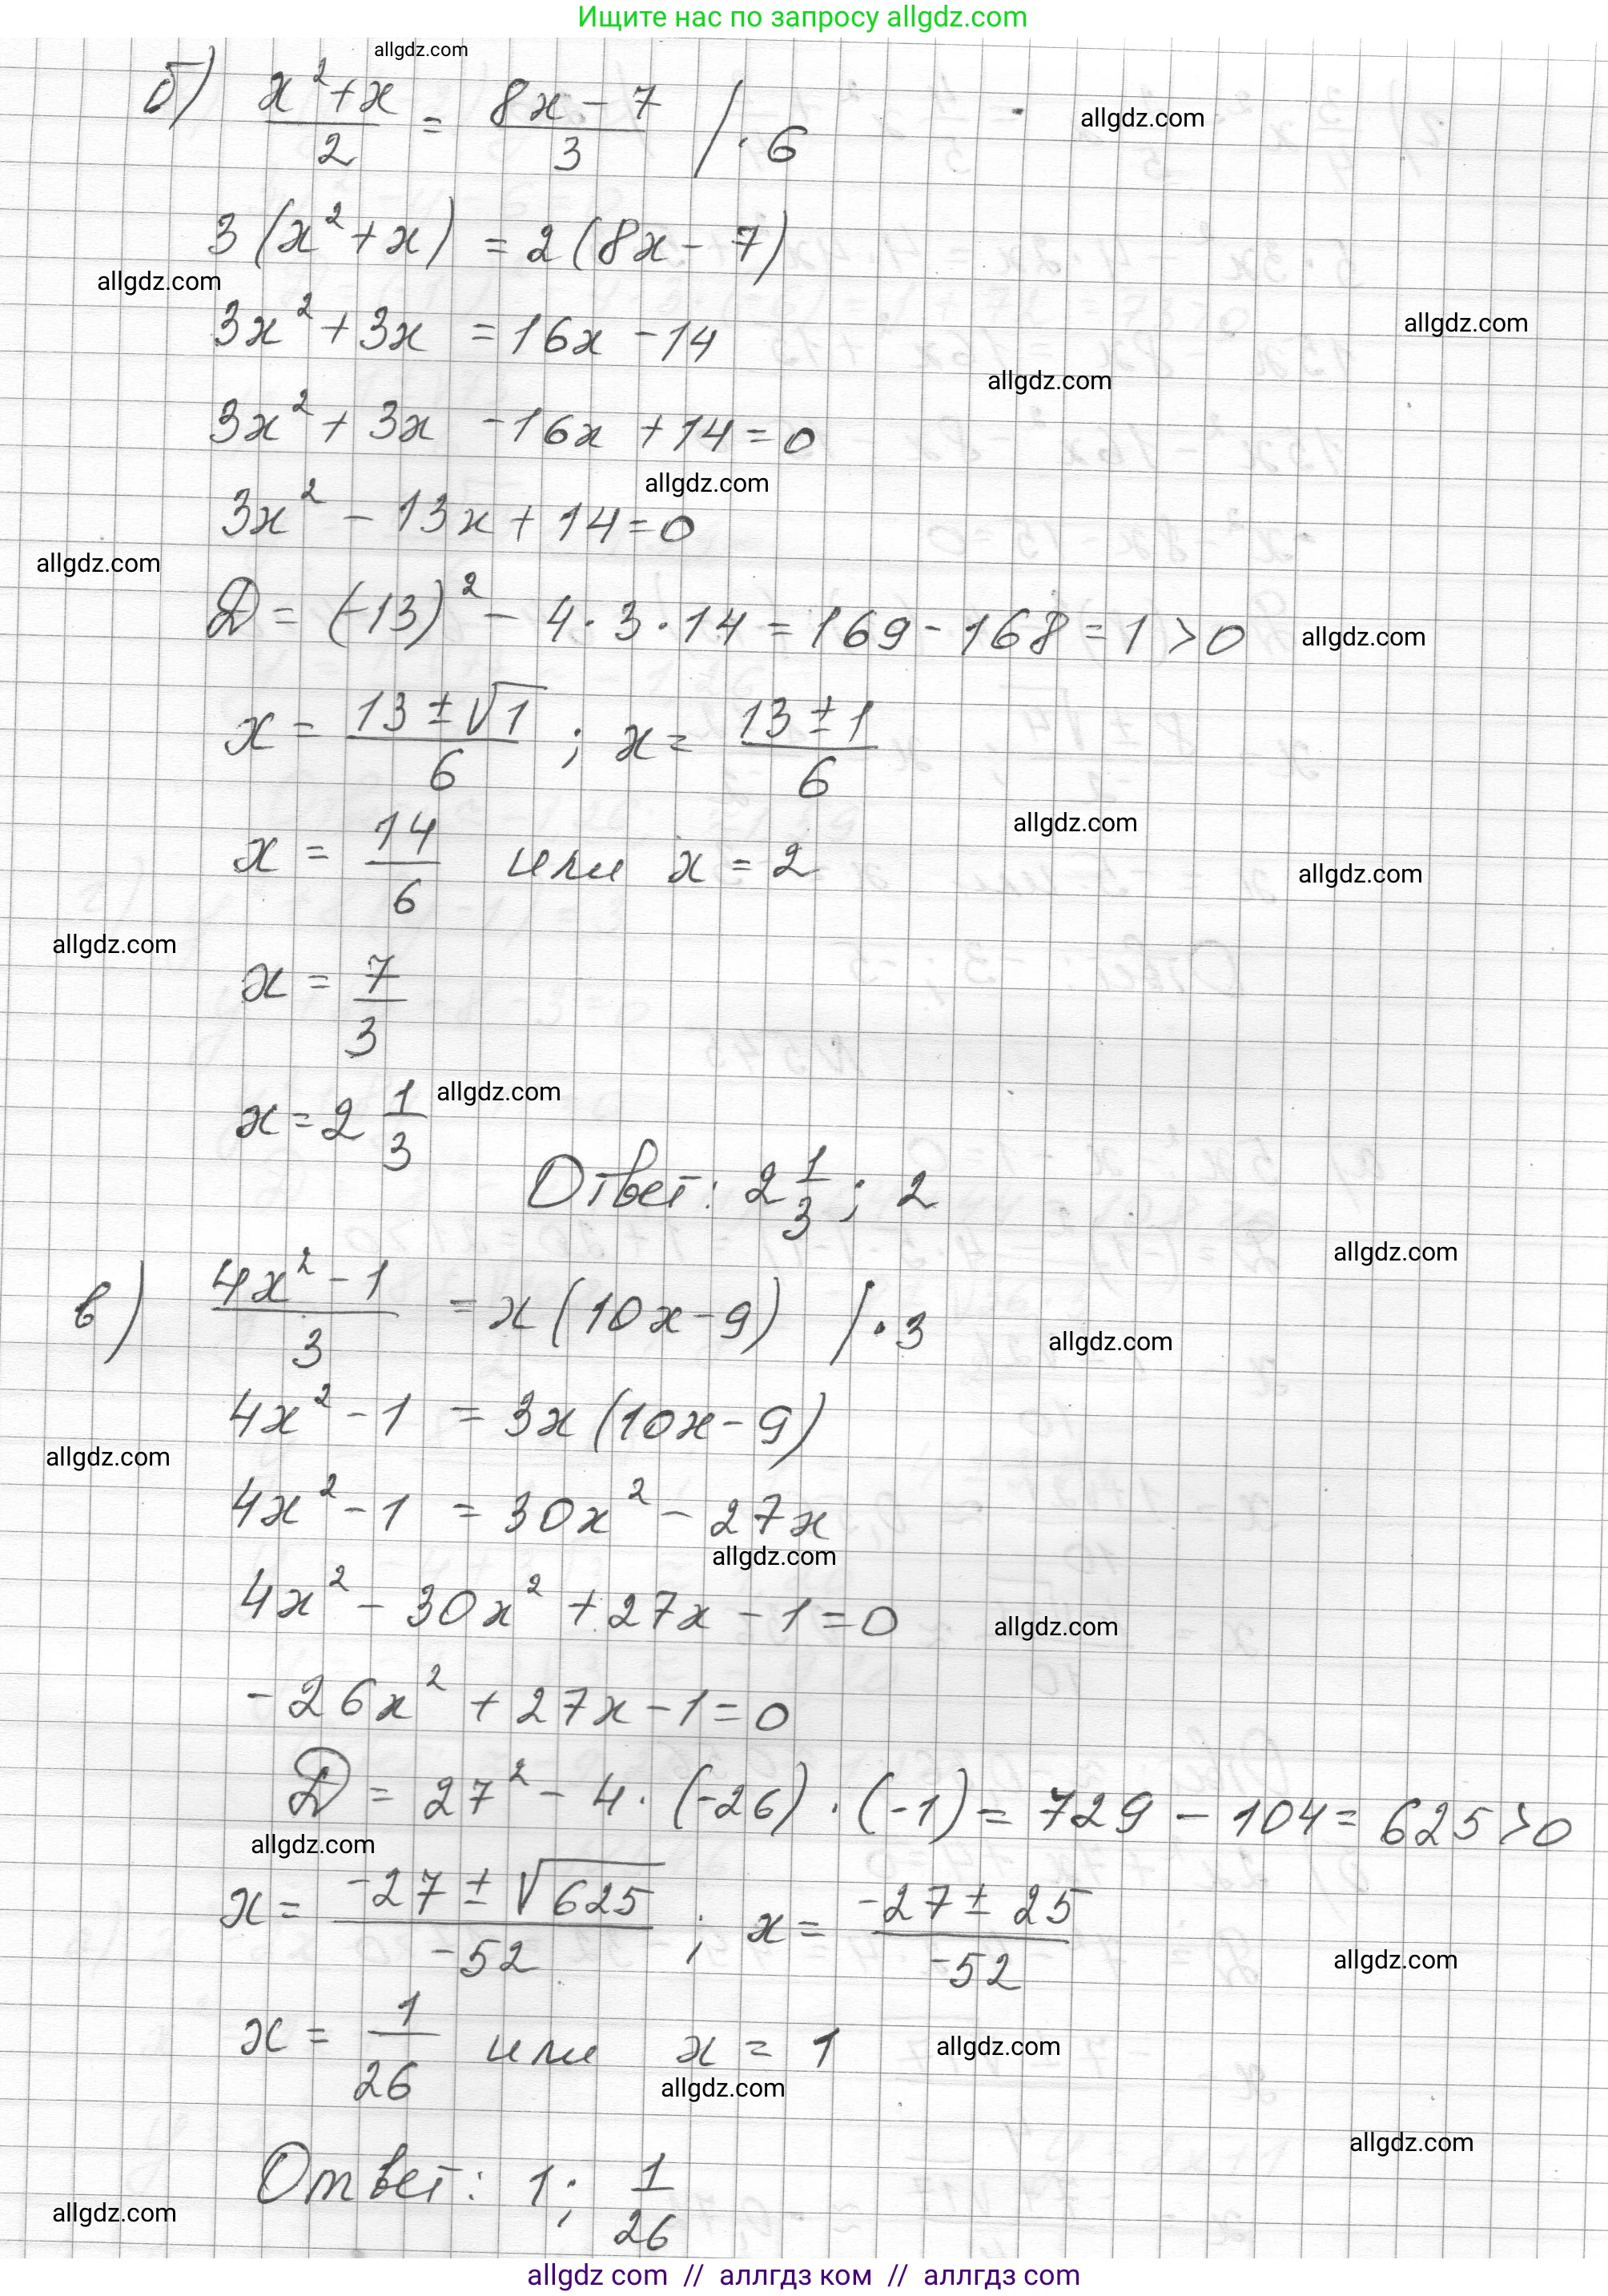 Ищите нас по запросу allgdz.com
allgdz.com
б) (x²+x)/2 = (8x-7)/3 /·6
allgdz.com
3(x²+x) = 2(8x-7)
allgdz.com
3x²+3x = 16x-14
allgdz.com
allgdz.com
3x²+3x-16x+14=0
allgdz.com
3x²-13x+14=0
allgdz.com
D = (-13)²-4·3·14=169-168=1>0
allgdz.com
x = (13±√1)/6 ; x = (13±1)/6
allgdz.com
x = 14/6 или x = 2
allgdz.com
allgdz.com
x = 7/3
x = 2 1/3
allgdz.com
Ответ: 2 1/3; 2
allgdz.com
в) (4x²-1)/3 = x(10x-9) /·3
allgdz.com
4x²-1 = 3x(10x-9)
allgdz.com
4x²-1 = 30x²-27x
allgdz.com
4x²-30x²+27x-1=0
allgdz.com
-26x²+27x-1=0
D = 27²-4·(-26)·(-1)=729-104=625>0
allgdz.com
x = (-27±√625)/-52 ; x = (-27±25)/-52
allgdz.com
x = 1/26 или x = 1
allgdz.com
allgdz.com
allgdz.com
Ответ: 1; 1/26
allgdz.com
allgdz com // аллгдз ком // аллгдз com